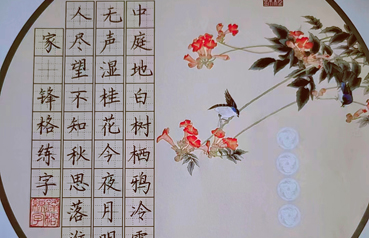 中庭地白树栖鸦冷露
无声湿桂花今夜月明
人尽望不知秋思落
家 锋格练字